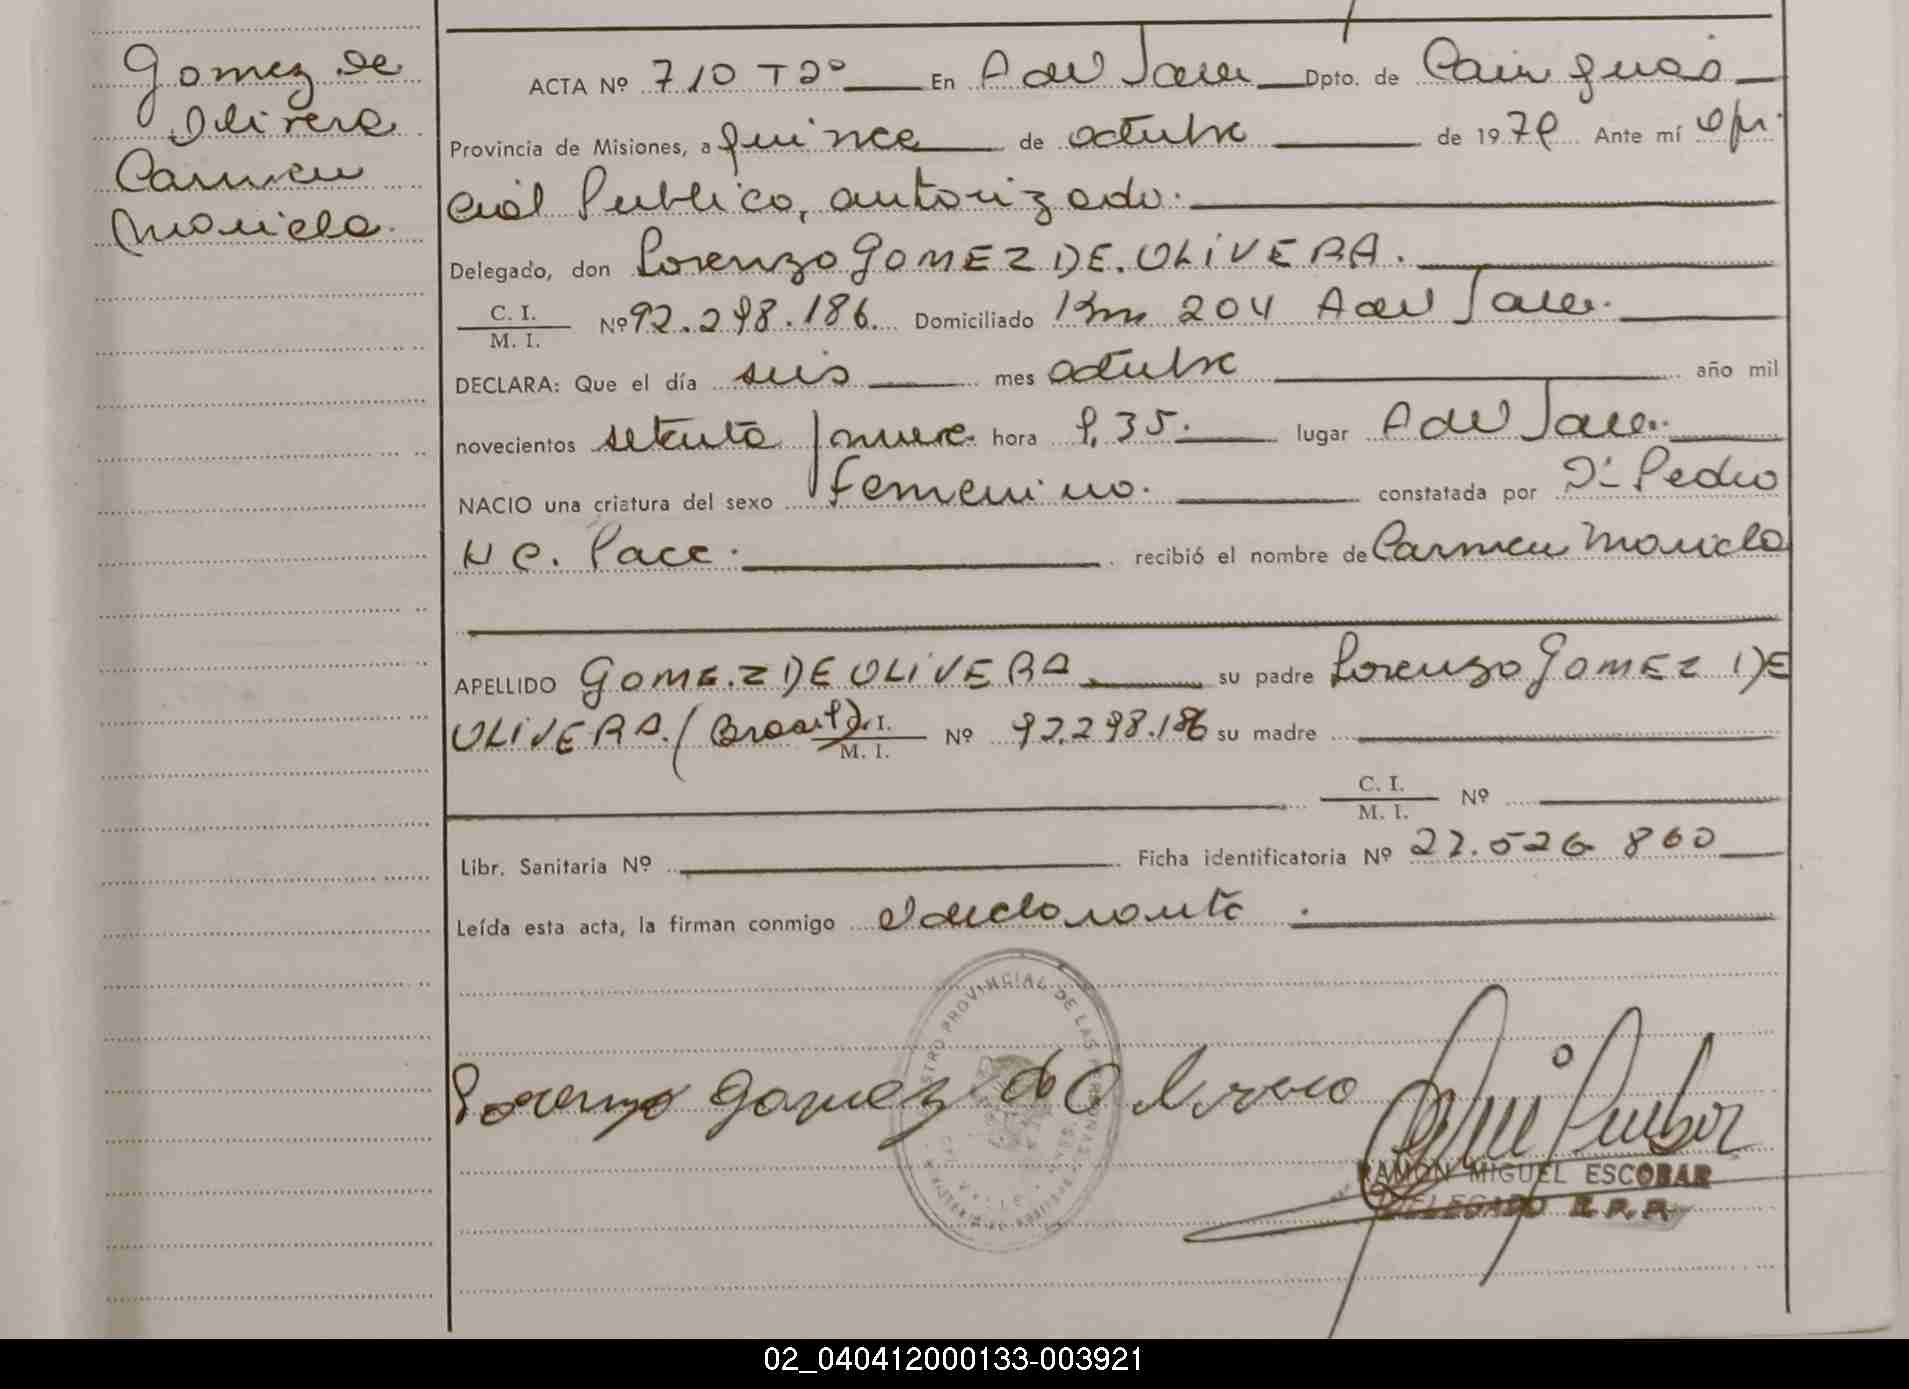 Gomez de
Olivera
Carmen
Mariela.
ACTA Nº 710 T2º En A del Valle Dpto. de Cainguas
Provincia de Misiones, a quince de octubre de 1979 Ante mí ofi
cial Publico, autorizado.
Delegado, don Lorenzo GOMEZ DE OLIVERA.
C. I.
M. I. Nº 92.298.186 Domiciliado Km 204 A del Valle.
DECLARA: Que el día seis mes octubre año mil
novecientos setenta y nueve hora 9,35. lugar A del Valle.
NACIO una criatura del sexo Femenino. constatada por Dr Pedro
N C. Pace. recibió el nombre de Carmen Mariela
APELLIDO GOMEZ DE OLIVERA su padre Lorenzo GOMEZ DE
OLIVERA. (Brasil) C. I.
M. I. Nº 92.298.186 su madre
C. I.
M. I. Nº
Libr. Sanitaria Nº Ficha identificatoria Nº 27.526 860
Leída esta acta, la firman conmigo el declarante.
PROVINCIAL DE LAS PERSONAS
Lorenzo gomez de Olivera
RAMON MIGUEL ESCOBAR
DELEGADO R.P.P.
02_040412000133-003921